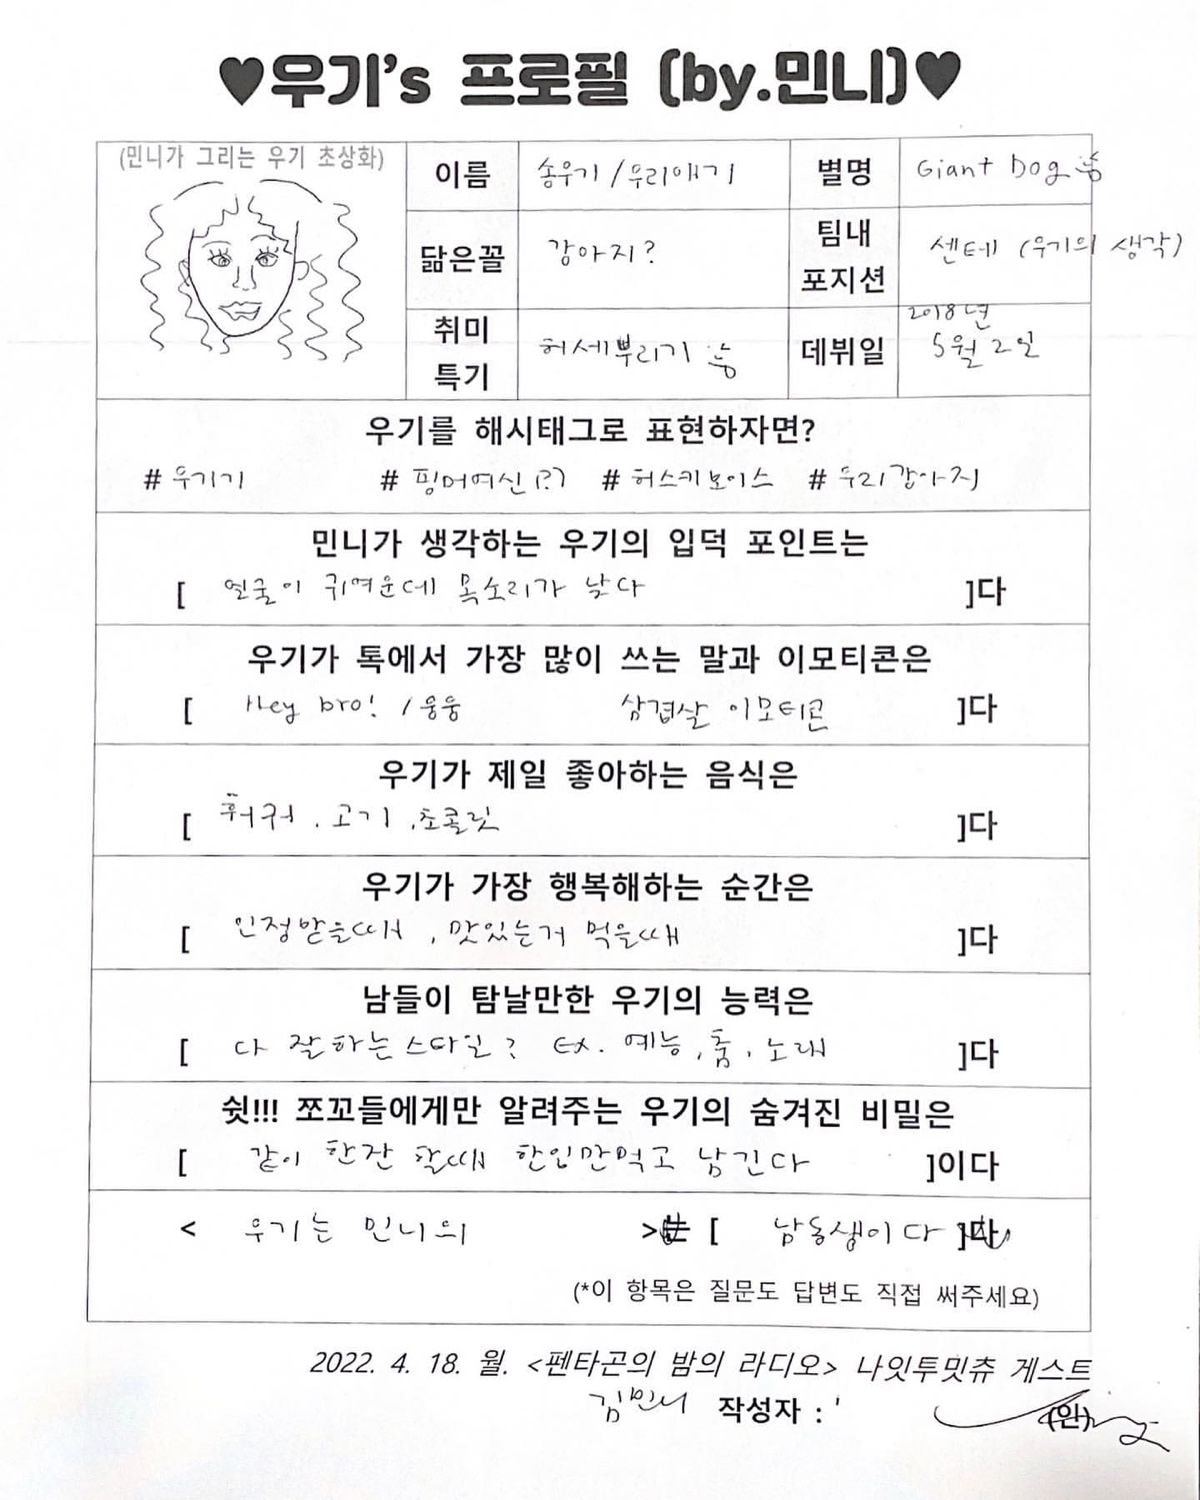 ♥우기's 프로필 (by.민니)♥
(민니가 그리는 우기 초상화)
이름 송우기 / 우리애기 별명 Giant Dog
닮은꼴 강아지? 팀내 포지션 센테 (우기의 생각)
취미 특기 허세뿌리기 데뷔일 2018년 5월 2일
우기를 해시태그로 표현하자면?
# 우기기 # 핑머여신(?) # 허스키보이스 # 우리강아지
민니가 생각하는 우기의 입덕 포인트는
[ 얼굴이 귀여운데 목소리가 낮다 ]다
우기가 톡에서 가장 많이 쓰는 말과 이모티콘은
[ Hey bro! / 웅웅 삼겹살 이모티콘 ]다
우기가 제일 좋아하는 음식은
[ 훠궈 . 고기 , 초콜릿 ]다
우기가 가장 행복해하는 순간은
[ 인정받을때 , 맛있는거 먹을때 ]다
남들이 탐날만한 우기의 능력은
[ 다 잘하는스타일? Ex. 예능 , 춤 , 노래 ]다
쉿!!! 쪼꼬들에게만 알려주는 우기의 숨겨진 비밀은
[ 같이 한잔 할때 한입만먹고 남긴다 ]이다
< 우기는 민니의 > [ 남동생이다 ]다
(*이 항목은 질문도 답변도 직접 써주세요)
2022. 4. 18. 월. <펜타곤의 밤의 라디오> 나잇투밋츄 게스트
김민니 작성자 : (인)